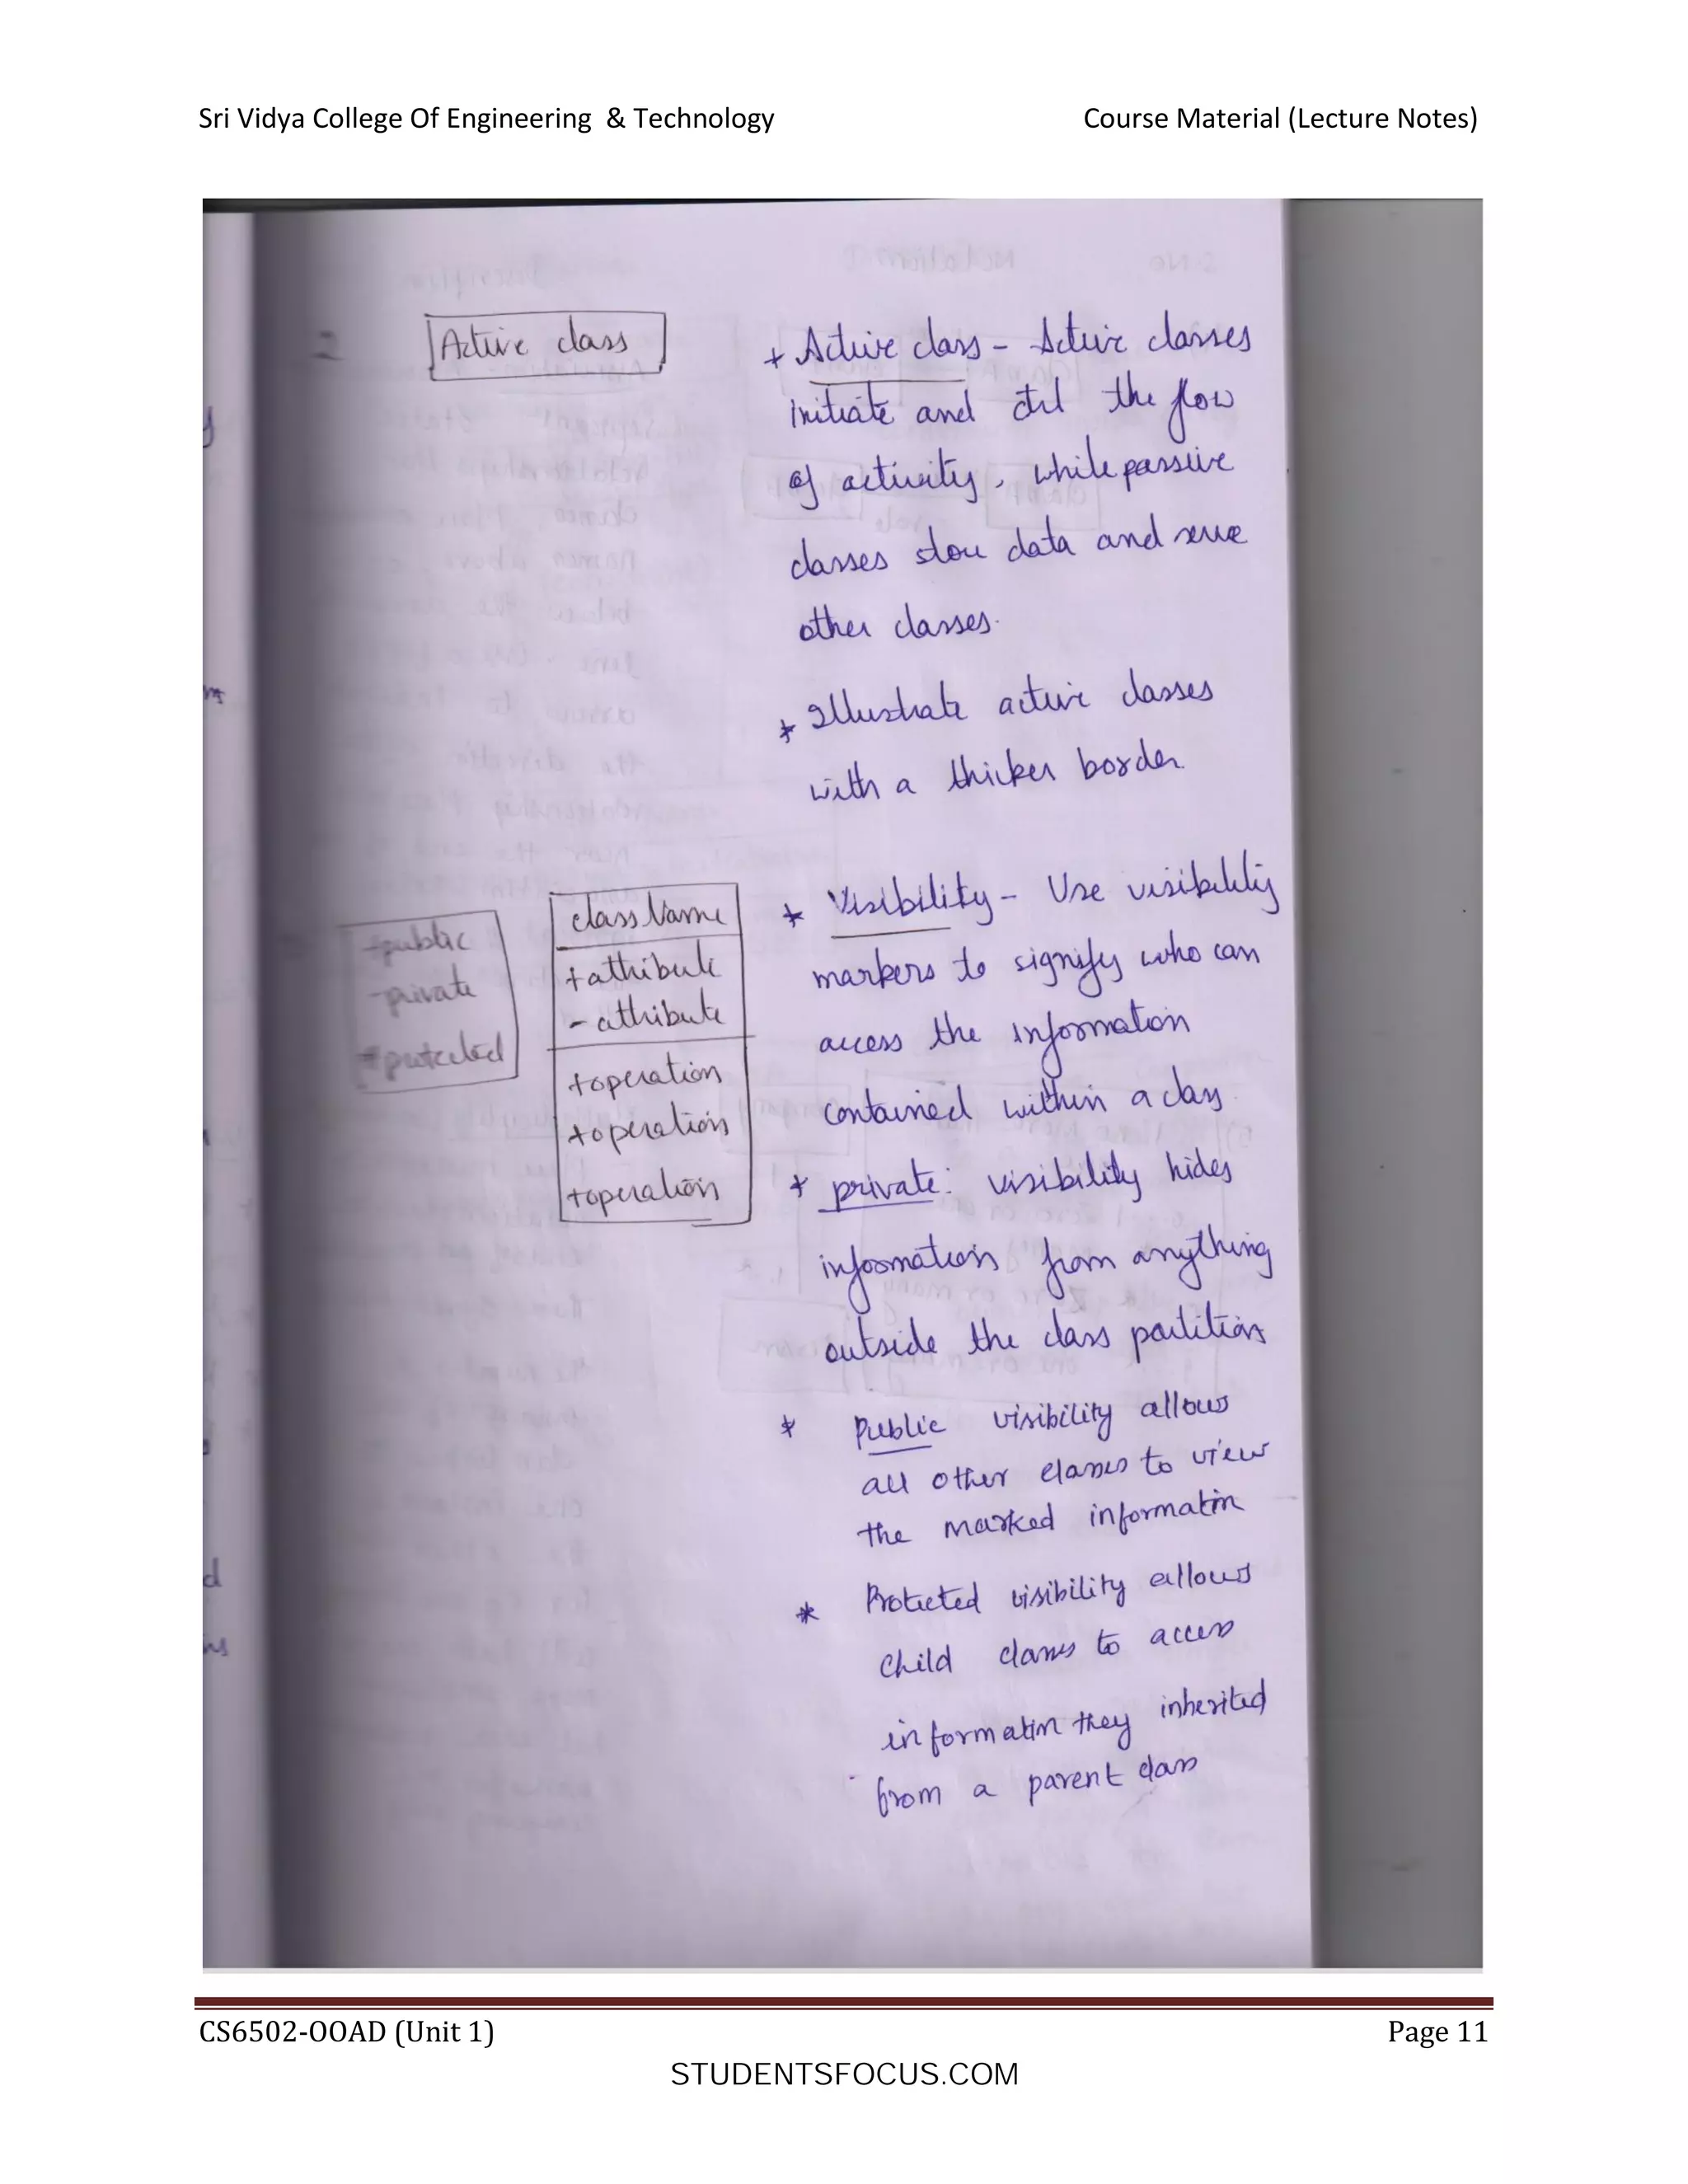 Sri Vidya College Of Engineering & Technology Course Material (Lecture Notes)
Active class
* Active class - Active classes
initiate and ctrl the flow
of activity, while passive
classes store data and serve
other classes.
* Illustrate active classes
with a thicker border
+public
-private
#protected
className
+attribute
-attribute
+operation
+operation
+operation
* Visibility - Use visibility
markers to signify who can
access the information
contained within a class
* private: visibility hides
information from anything
outside the class partition
* Public visibility allows
all other classes to view
the marked information
* Protected visibility allows
child classes to access
information they inherited
from a parent class
CS6502-OOAD (Unit 1) Page 11
STUDENTSFOCUS.COM